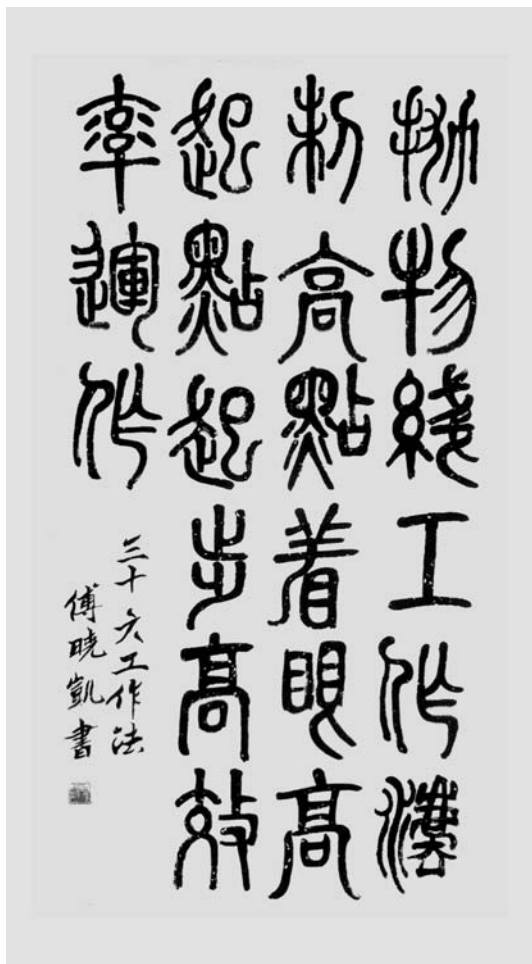 拋物綫工作灋
制高點着眼高
起點起步高效
率運作
三十六工作法
傅曉凱書